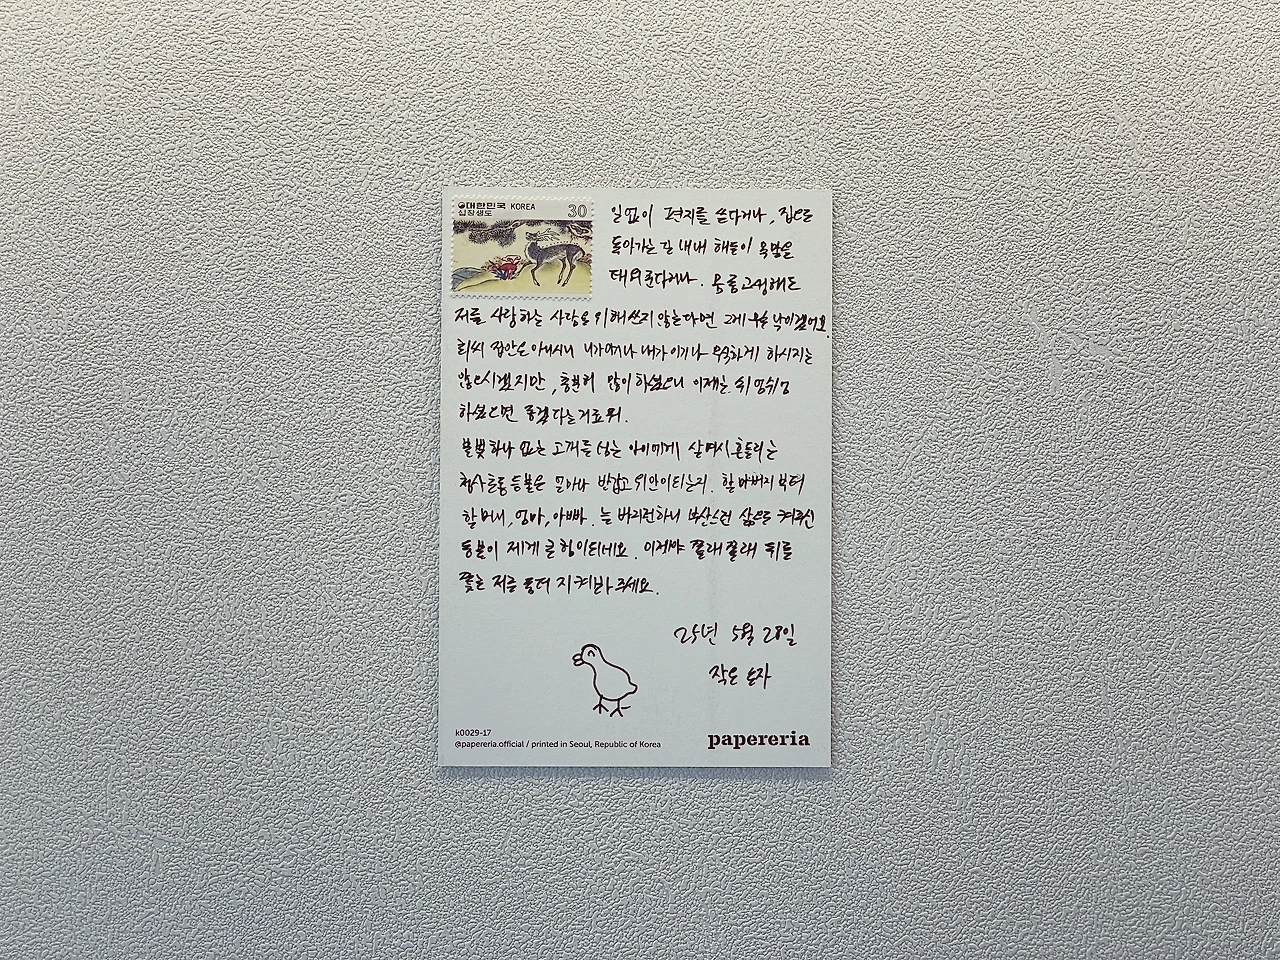 대한민국 KOREA 30
십장생도
일없이 편지를 쓴다거나, 집으로
돌아가는 길 내내 해들이 욕망을
태워준다거나. 몸통고생해도
저를 사랑하는 사람을 위해 쓰지 않는다면 그게 무슨 낙이겠어요.
최씨 집안은 아니시니 네가 이기나 내가 이기나 우악하게 하시지는
않으시겠지만, 충분히 많이 하셨으니 이제는 쉬엄쉬엄
하셨으면 좋겠다는거죠 뭐.
불빛 하나 없는 고개를 넘는 아이에게 살며시 흔들리는
등불은 얼마나 반갑고 위안이 되는지. 할아버지부터
할머니, 엄마, 아빠. 늘 바지런하니 부산스런 삶으로 켜두신
등불이 제게 큰 힘이 되네요. 이제야 쫄래쫄래 뒤를
쫓는 저를 좀 더 지켜봐 주세요.
25년 5월 28일
작은 손자
k0029-17
@papereria.official / printed in Seoul, Republic of Korea
papereria